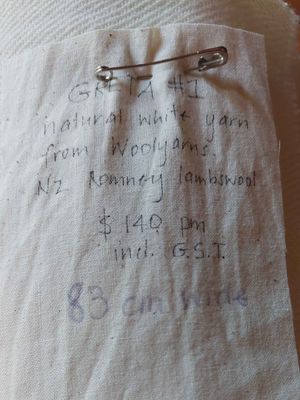 GRETA #1
natural white yarn
from Woolyarns.
NZ Romney lambswool
$ 140 pm
incl. G.S.T.
83 cm wide